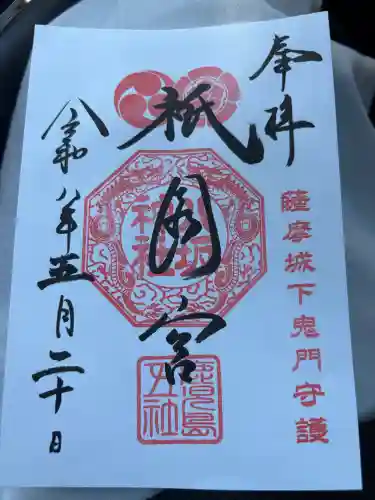 奉拝
薩摩城下鬼門守護
祇園宮
八坂神社
鹿児島五社
令和八年五月二十日